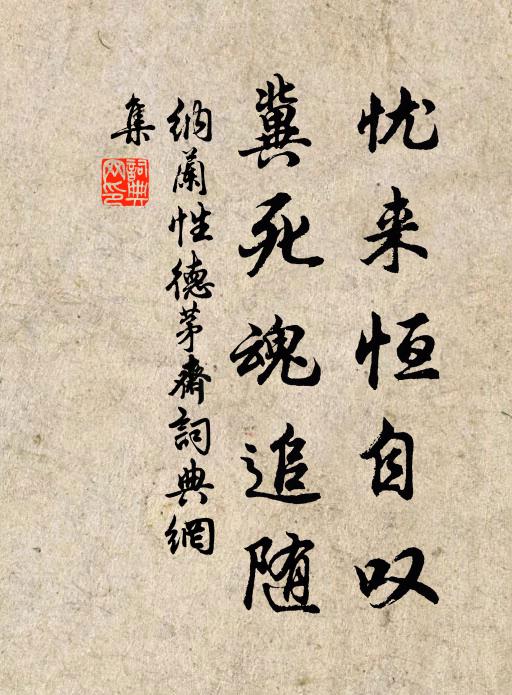 忧来恒自叹
冀死魂追随
纳兰性德茅斋詞典網
集
詞典
网印